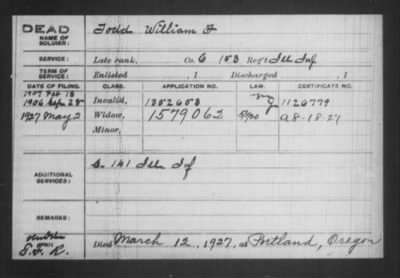 DEAD
NAME OF SOLDIER: Todd William F
SERVICE: Late rank, Co. G 153 Reg't Ill Inf
TERM OF SERVICE: Enlisted , 1 Discharged , 1
DATE OF FILING. CLASS. APPLICATION NO. LAW. CERTIFICATE NO.
1907 Feb 18
1906 Sep 28 Invalid, 1352653 1126779
1927 May 2 Widow, 1579062 A8-18-27
Minor,
ADDITIONAL SERVICES: G. 141 Ill Inf
REMARKS:
Died March 12, 1927, at Portland, Oregon